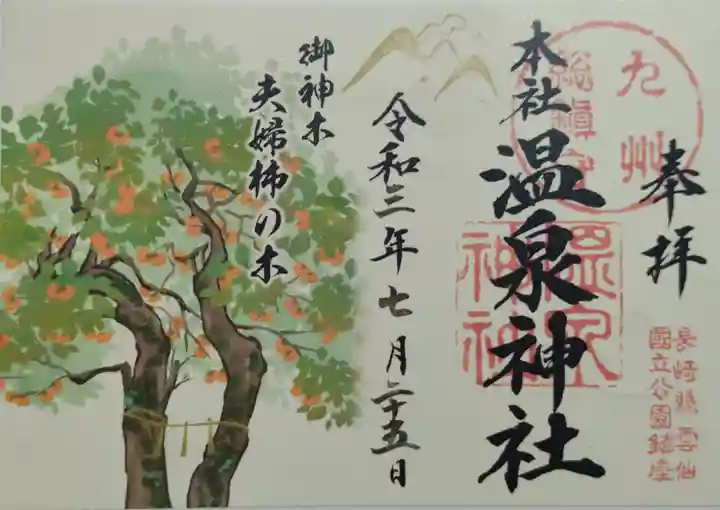 奉拝
九州
総鎮守
本社
温泉神社
温泉
神社
長崎縣雲仙
國立公園鎮座
令和三年七月二十五日
御神木
夫婦柿の木